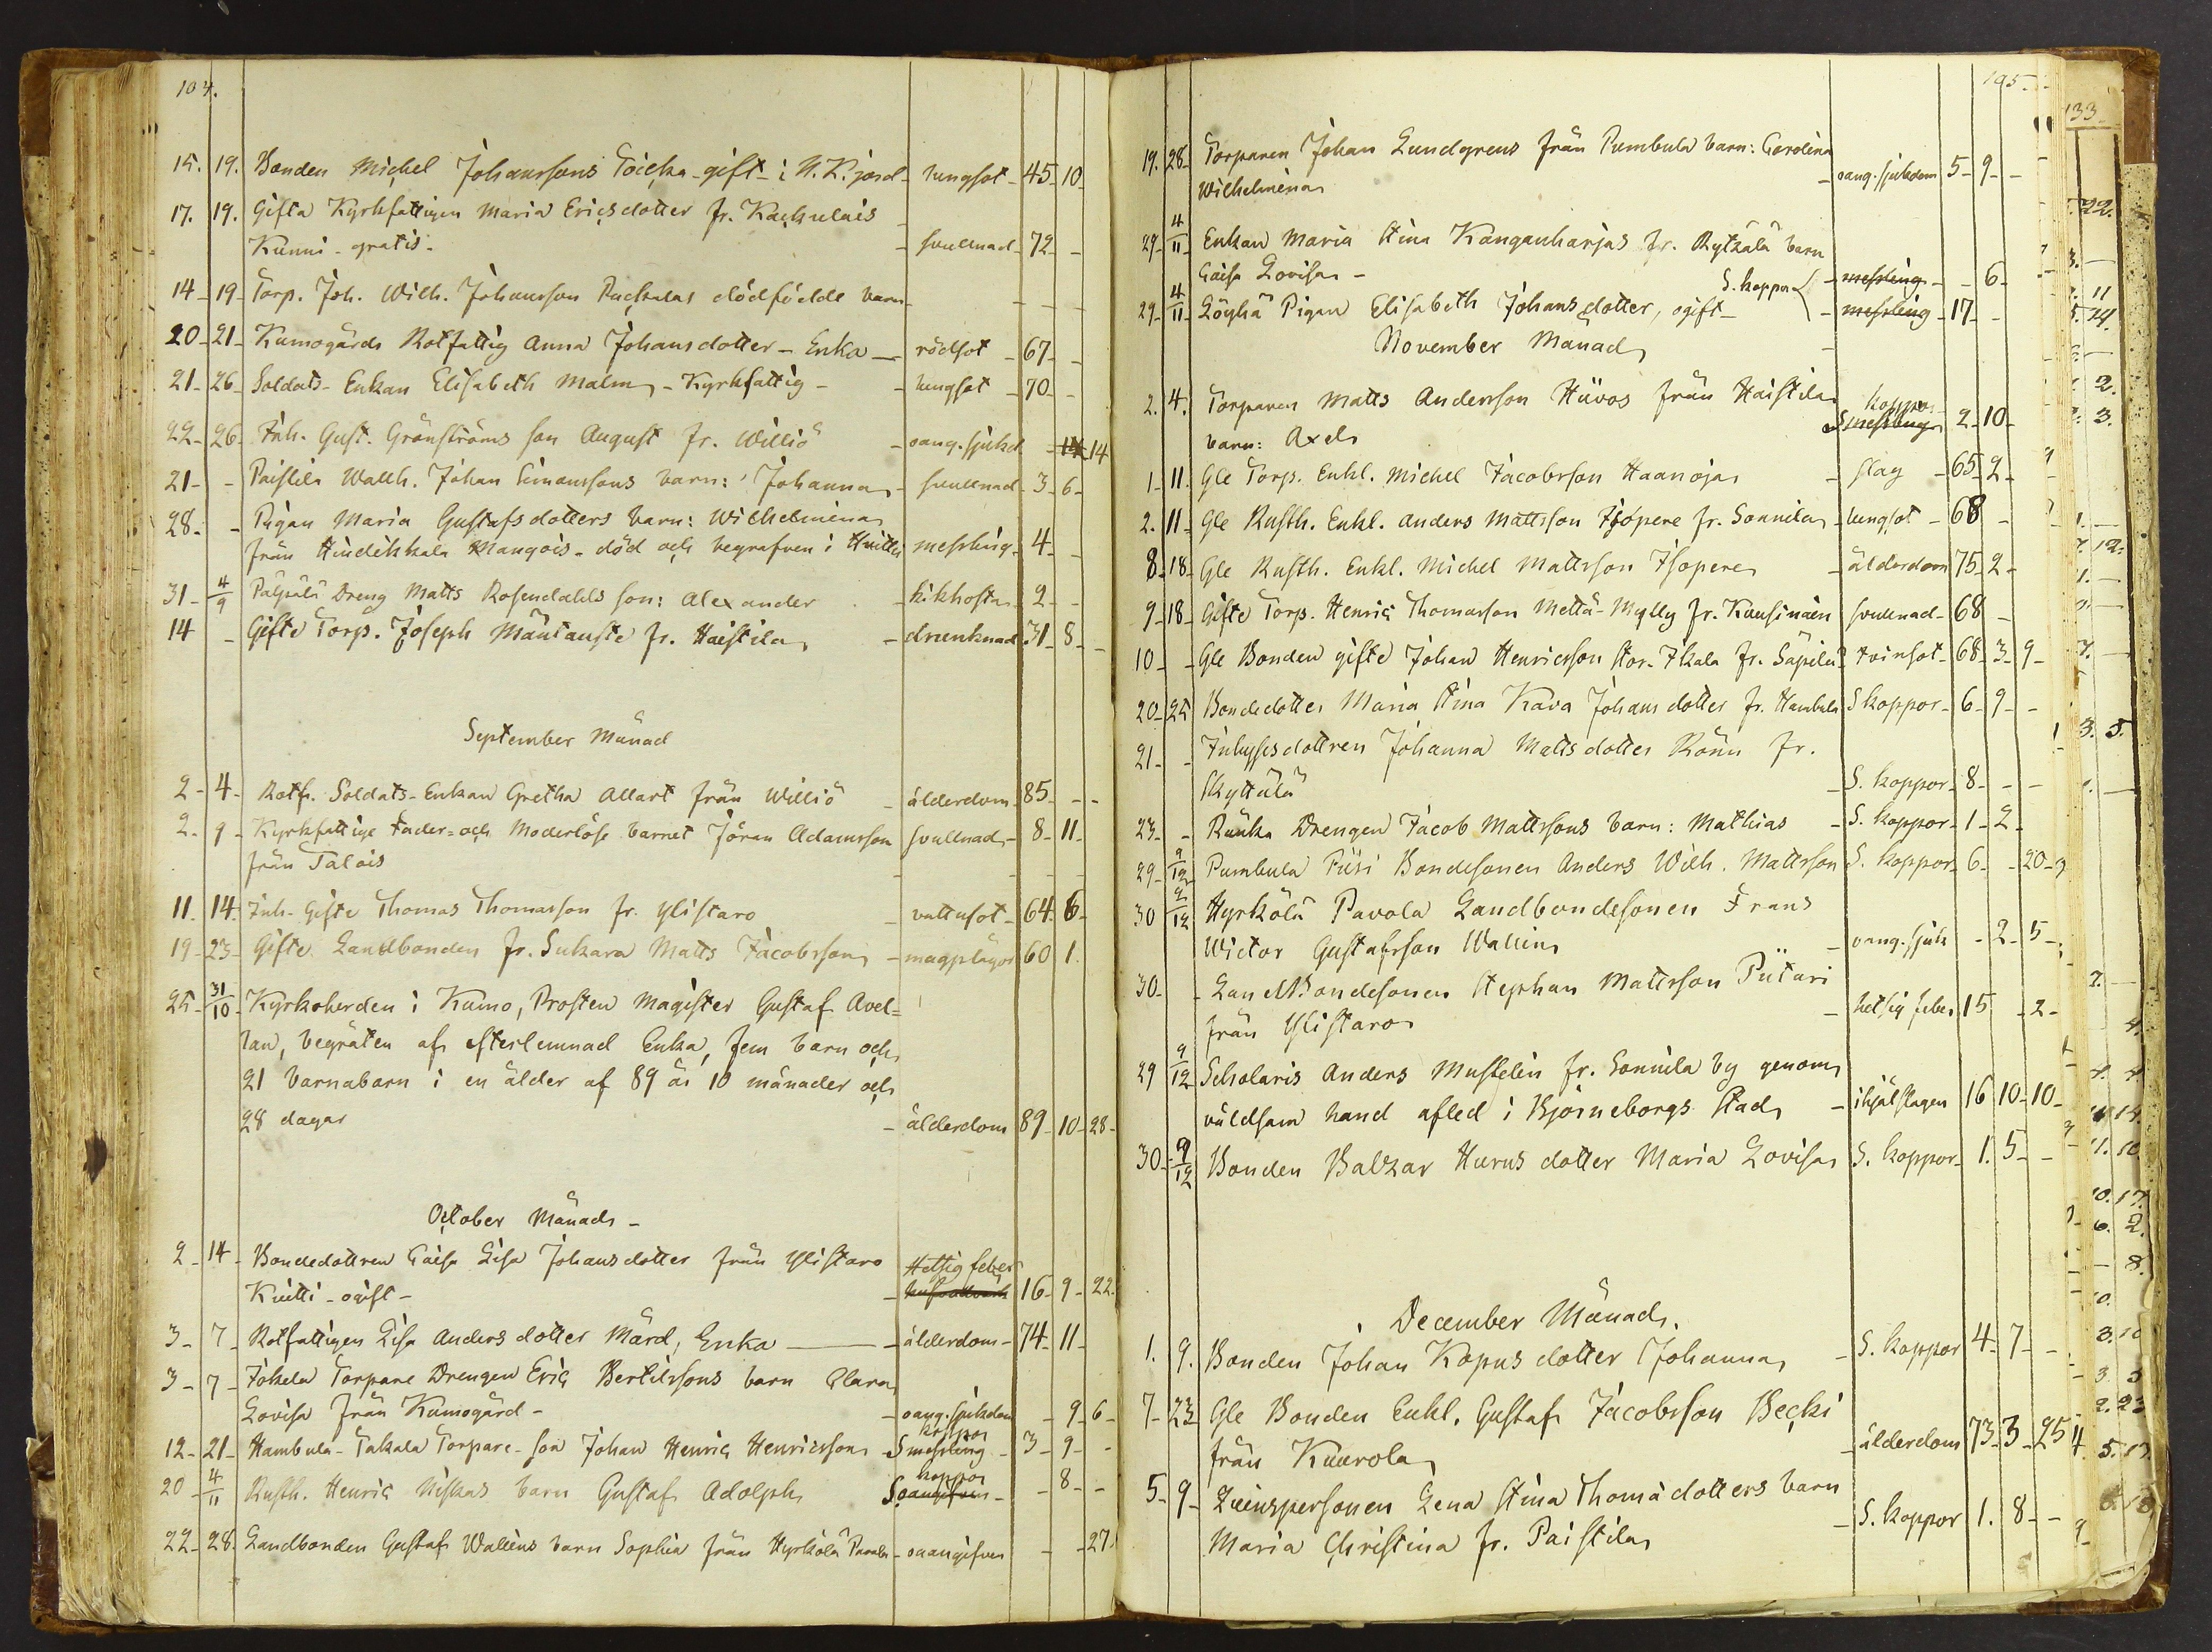 104.
15. 19. Bonden Michel Johanssons Toicka gift i N. K. jord lungsot 45 10
17. 19. Gifta Kyrkfattigen Maria Ericsdotter fr.
Kunni gratis svullnad 72
14 19 Torp. Joh. Wilh. Johansson Packalas dödfödde barn
20 21 Kumogårds Rotfattig Anna Johansdotter Enka rödsot 67
21 26 Soldats-Enkan Elisabeth Malm Kyrkfattig lungsot 70
22 26 Inh. Gust. Grönströms son August fr. Williö oang. sjukd. 14
21 Paistila Wallh. Johan Simonssons barn: Johanna svullnad 3 6
28. Pigan Maria Gustafsdotters barn: Wilhelmina
från Hindikkala Mangois död och begrafven i messling 4
31 4/9 Dreng Matts Rosendahls son: Alexander kikhosta 2
14 Gifte Torp. Joseph Mäntauste fr. Haistila drunknad 31 8
September Månad
2 4 Rotfr. Soldats-Enkan Gretha Allart från Williö ålderdom 85
2. 9 Kyrkfattige Fader- och Moderlöse barnet Jöran Adamsson svullnad 8 11
från Talois
11 14. Inh. Gifte Thomas Thomasson fr. Ylistaro vattusot 64 6
19 23 Gifte Landbonden fr. Sukara Matts Jacobsson magplågor 60 1.
25 31/10 Kyrkoherden i Kumo, Prosten Magister Gustaf Avel-
lan, begråten af efterlemnad Enka, fem barn och
21 barnabarn i en ålder af 89 år 10 månader och
28 dagar ålderdom 89 10 28
October Månad
2 14 Bondedottren Caisa Lisa Johansdotter från Ylistaro Hetsig feber
Knitti ogift 16 9 22
3 7 Rotfattigen Lisa Andersdotter Mård, Enka ålderdom 74 11
3 7 Torpare Drengen Eric Bertilssons barn Clara
Lovisa från Kumogård oang. sjukdom 9 6
koppor
12 21 Hambula-Takala Torpare-son Johan Henric Henricsson S messling 3 9
koppor
20 4/11 Rusth. Henric Niskas barn Gustaf Adolph S oangifven 8
22 28 Landbonden Gustaf Wallins barn Sophia från Hyrkölä oangifven 27
195
19. 28 Torparen Johan Lundgrens från Pumbula barn: Carolina
Wilhelmina oang. sjukdom 5 9
29 4/11 Enkan Maria Stina Kanganharjas fr. barn
Caisa Lovisa messling 6
S. koppor
29 4/11 Löyhä Pigan Elisabeth Johansdotter, ogift messling 17
November Månad
2. 4. Torparen Matts Andersson Hüvos från Haistila koppor
barn: Axel S messling 2 10
1 11. Gle Torp. Enkl. Michel Jacobsson Haanoja slag 65 2
2. 11 Gle Rusth. Enkl. Anders Mattsson Isopere fr. Sonnila lungsot 68
8 18 Gle Rusth. Enkl. Michel Mattsson Isopere ålderdom 75 2
9 18 Gifte Torp. Henric Thomasson Mettä-Mylly fr. svullnad 68
10 Gle Bonden gifte Johan Henricsson Stor-Ikala fr. Säpilä tvinsot 68 3 9
20 25 Bondedotter Maria Stina Kava Johansdotter fr. Hambula S koppor 6 9
21 Inhyssdottren Johanna Mattsdotter Rönn fr.
Skyttälä S. koppor 8
23 Ränka Drengen Jacob Mattssons barn: Mathias S. koppor 1 2
29 9/12 Pumbula Füri Bondesonen Anders Wilh. Mattsson S. koppor 6 20
30 2/12 Hyrkölä Pavola Landbondesonen Frans
Wictor Gustafsson Wallin oang. sjuk 2 5
30 LandBondesonen Stephan Mattsson Piitari
från Ylistaro hetsig feber 15 2
29 9/12 Scholaris Anders Mustelin fr. Sonnila by genom
våldsam hand afled i Björneborgs Stad ihjälslagen 16 10 10
30 9/12 Bonden Balzar Hurus dotter Maria Lovisa S. koppor 1. 5
December Månad.
1. 9. Bonden Johan Kopus dotter Johanna S. koppor 4 7
7 23 Gle Bonden Enkl. Gustaf Jacobsson Becki
från Kuurola ålderdom 73 3 25
5 9 Qvinspersonen Lena Stina Thomädotters barn
Maria Christina fr. Paistila S. koppor 1. 8
133